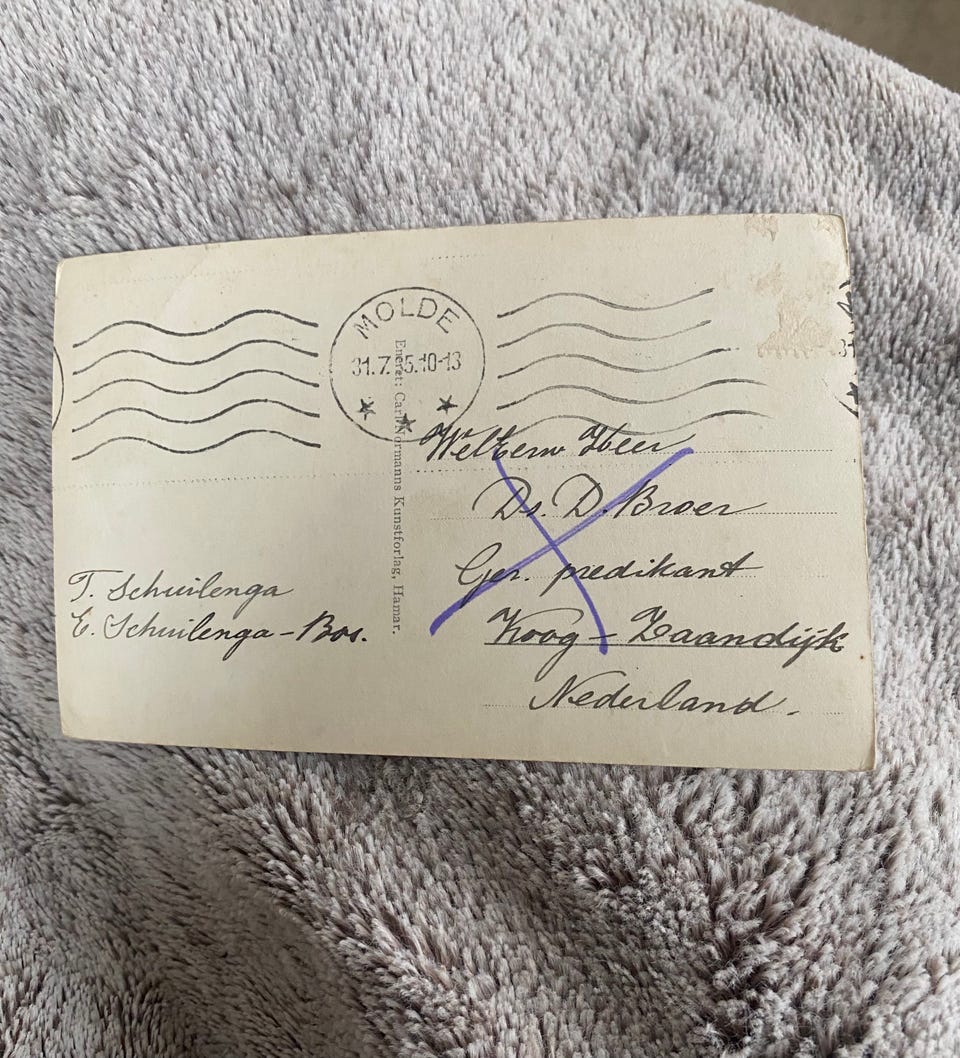 MOLDE
31.7.35.10-13
Eneret: Carl Normanns Kunstforlag, Hamar.
WelEerw Heer
Ds. D. Broer
Ger. predikant
Koog - Zaandijk
Nederland.
T. Schuilenga
E. Schuilenga - Bos.
31